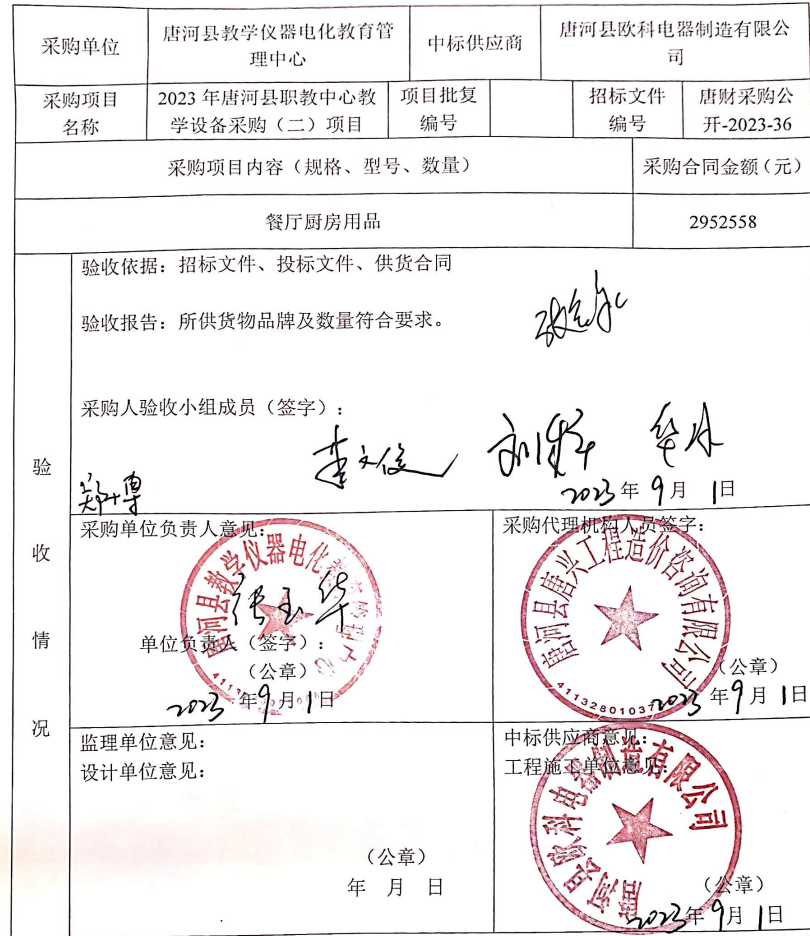 采购单位
唐河县教学仪器电化教育管
理中心
中标供应商
唐河县欧科电器制造有限公
司
采购项目
名称
2023 年唐河县职教中心教
学设备采购（二）项目
项目批复
编号
招标文件
编号
唐财采购公
开-2023-36
采购项目内容（规格、型号、数量）
采购合同金额（元）
餐厅厨房用品
2952558
验收情况
验收依据：招标文件、投标文件、供货合同
验收报告：所供货物品牌及数量符合要求。
采购人验收小组成员（签字）：
李文俊
2023 年 9 月 1 日
采购单位负责人意见：
张玉华
单位负责人（签字）：
（公章）
2023 年 9 月 1 日
唐河县教学仪器电化教育管理中心
采购代理机构人员签字：
唐河县唐兴工程造价咨询有限公司
（公章）
2023 年 9 月 1 日
监理单位意见：
设计单位意见：
（公章）
年 月 日
中标供应商意见：
工程施工单位意见：
唐河县欧科电器制造有限公司
（公章）
2023 年 9 月 1 日